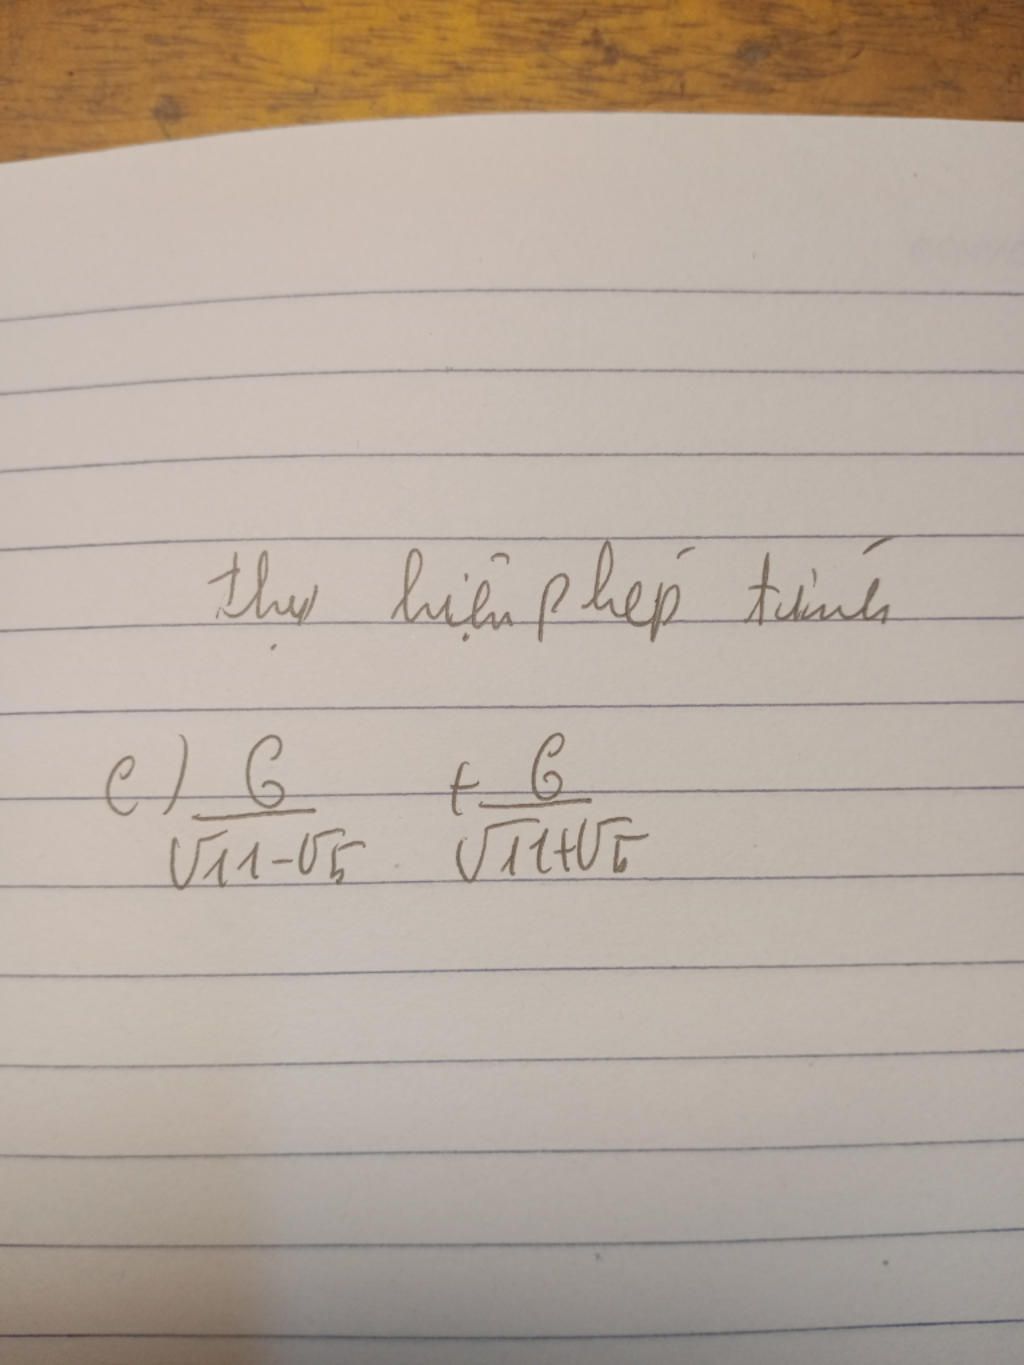 thự hiện phép tính
c) 6/(√11-√5) + 6/(√11+√5)